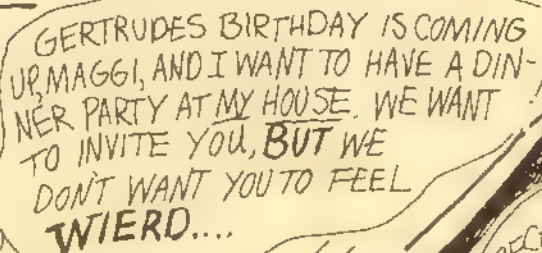 GERTRUDES BIRTHDAY IS COMING
UP, MAGGI, AND I WANT TO HAVE A DIN-
NER PARTY AT MY HOUSE. WE WANT
TO INVITE YOU, BUT WE
DON'T WANT YOU TO FEEL
WIERD....